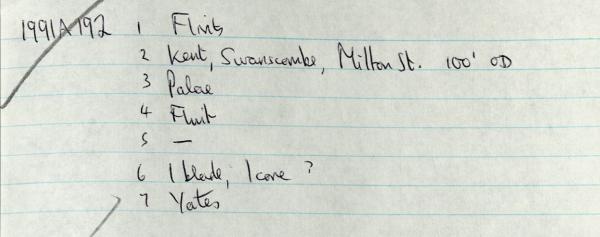 1991A192 1 Flints
2 Kent, Swanscombe, Milton St. 100' OD
3 Palae
4 Flint
5 —
6 1 blade, 1 core ?
7 Yates